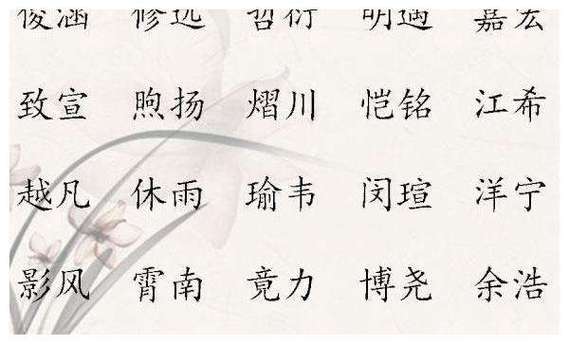 俊涵 修远 哲衍 明遇 嘉宏
致宣 煦扬 熠川 恺铭 江希
越凡 休雨 瑜韦 闵瑄 洋宁
影风 霄南 竟力 博尧 余浩